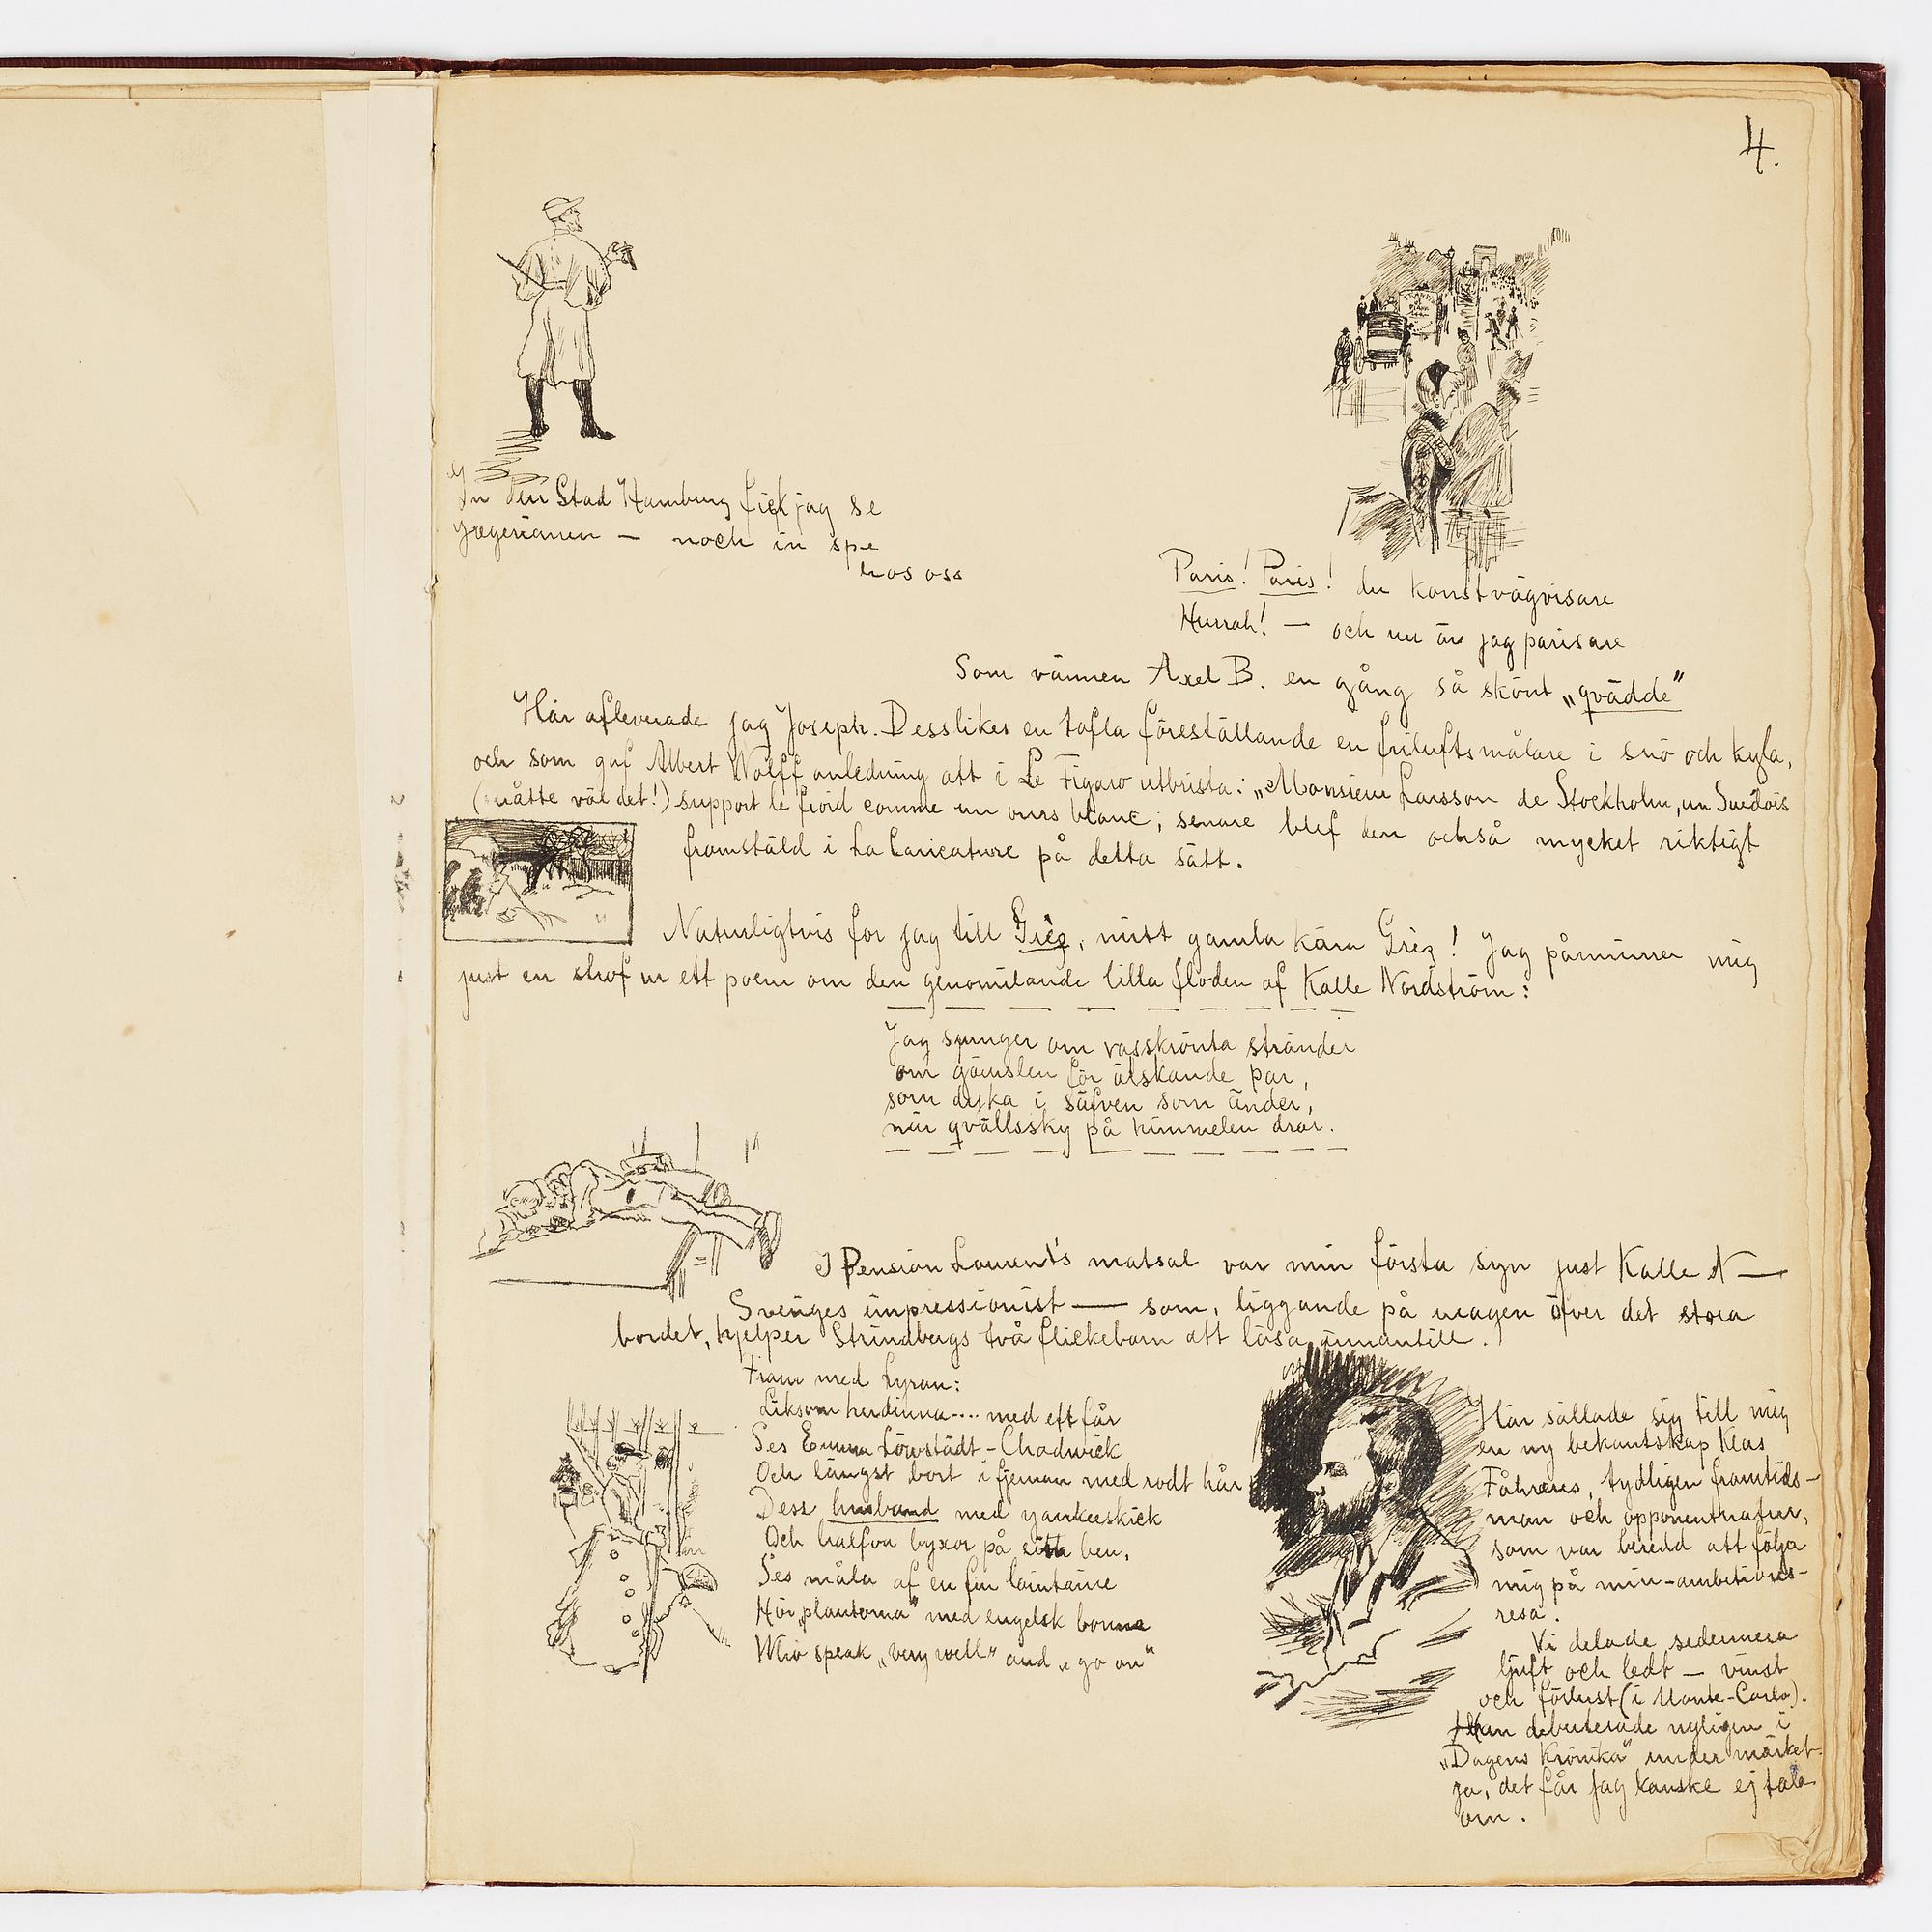 4.
In den Stad Hamburg fick jag se
Jægerianen — noch in spe
hos oss
Paris! Paris! du konstvägvisare
Hurrah! — och nu är jag parisare
Som vännen Axel B. en gång så skönt „qvädde”
Här aflevererade jag Joseph. Desslikes en tafla föreställande en friluftsmålare i snö och kyla,
och som gaf Albert Wolff anledning att i Le Figaro utbrista: „Monsieur Larsson de Stockholm, un Suédois
(måtte väl det!) support le froid comme un ours blanc; senare blef den också mycket riktigt
framstäld i La Caricature på detta sätt.
Naturligtvis for jag till Grèz, mitt gamla kära Grèz! Jag påminner mig
just en strof ur ett poem om den genomilande lilla floden af Kalle Nordström:
Jag sjunger om vasskrönta stränder
om gömslen för älskande par,
som dyka i säfven som änder,
när qvällssky på himmelen drar.
I Pension Laurent's matsal var min första syn just Kalle N—
Sveriges impressionist — som, liggande på magen öfver det stora
bordet, hjelper Strindbergs två flickebarn att läsa innantill.
Fram med Lyran:
Liksom herdinna.... med ett får
Ses Emma Löwstädt-Chadwick
Och längst bort i fjerran med rödt hår
Dess husband med yankeeskick
Och halfva byxor på sitta ben,
Ses måla af en fin lointaine
Hör „plantorna” med engelsk bonne
Who speak „very well” and „go on”
Här sällade sig till mig
en ny bekantskap Klas
Fåhræus, tydligen framtids-
man och opponentnatur,
som var beredd att följa
mig på min ambitions-
resa.
Vi delade sedermera
ljuft och ledt — vinst
och förlust (i Monte-Carlo).
Han debuterade nyligen i
„Dagens Krönika” under märket-
ja, det får jag kanske ej tala
om.